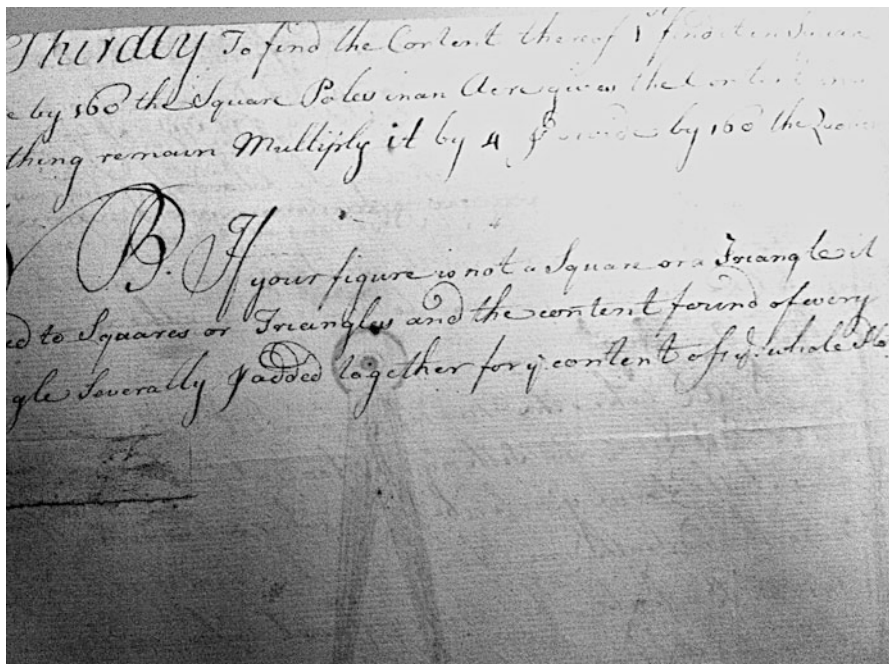 Thirdly To find the Content thereof 1st find it in Square
e by 160 the Square Poles in an Acre gives the Content in
thing remain Multiply it by 4 & divide by 160 the Quo
B. If your figure is not a Square or a Triangle it
ed to Squares or Triangles and the content found of every
gle Severally & added together for ye content of ye whole